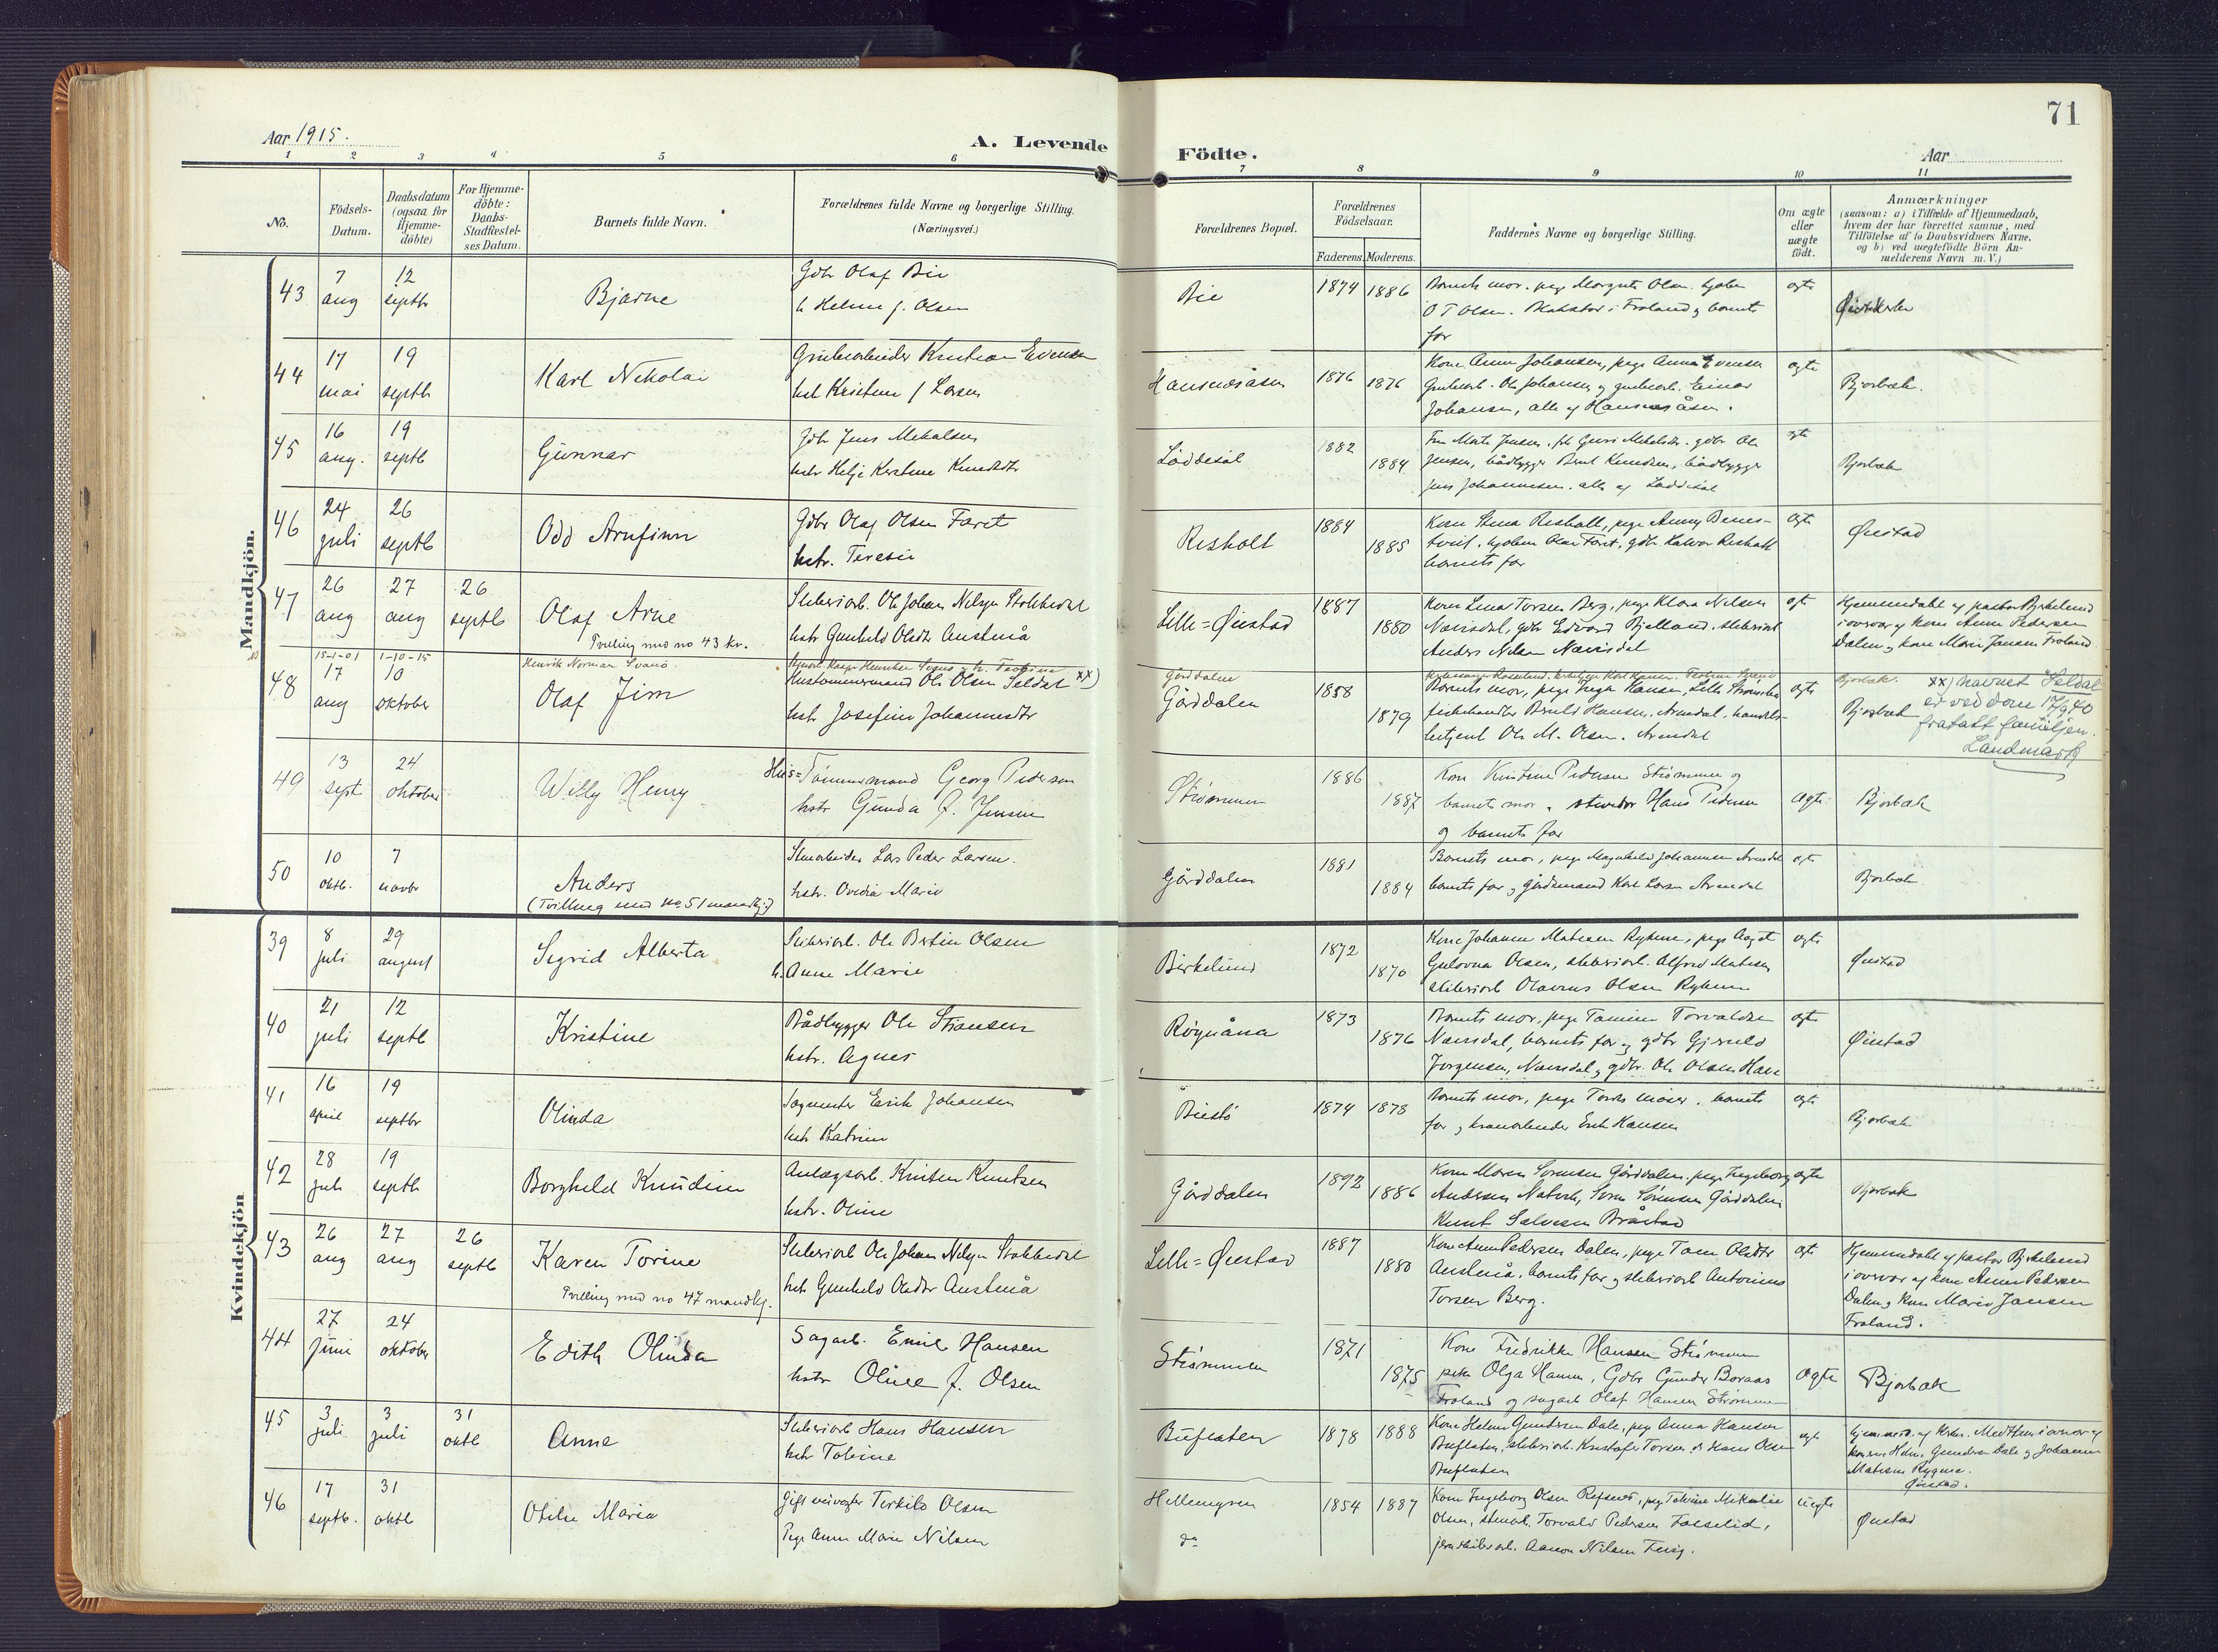 71
Aar 1915.
A. Levende Födte.
Aar
1 2 3 4 5 6 7 8 9 10 11
No.
Födsels-Datum.
Daabsdatum (ogsaa for Hjemme-döbte)
For Hjemme-döbte: Daabs-Stadfæstel-ses Datum.
Barnets fulde Navn.
Forældrenes fulde Navne og borgerlige Stilling. (Næringsvei.)
Forældrenes Bopæl.
Forældrenes Födselsaar.
Faderens. Moderens.
Faddernes Navne og borgerlige Stilling.
Om ægte eller uægte födt.
Anmærkninger
(saasom: a) i Tilfælde af Hjemmedaab,
hvem der har forrettet samme, med
Tilföielse af to Daabsvidners Navne,
og b) ved uægtefödte Börn An-
melderens Navn m. V.)
Mandkjön.
43 7 aug 12 septbr Bjarne
Gdbr Olaf Bie
h Helene f. Olsen
Bie 1874 1886
Barnets mor. pige Margit Olsen.
O T Olsen. i Froland og barnets
far
ægte
44 17 mai 19 septb Karl Nikolai
Grubearbeider Kristian Evensen
hst Kristine f Larsen
Hansnesåsen 1876 1876
Kone Anne Johansen, pige Anna Evensen
Grubearb. Ole Johansen og grubearb. Einar
Johansen, alle af Hansnesåsen.
ægte Bjorbæk.
45 16 aug. 19 septb Gunnar
Gdbr Jens Mikalsen
hstr Helje Kirstine Knudsdtr
Löddesöl 1882 1884
gdbr Ole
Jensen, bådbygger Knudsen, bådbygger
Jens Johannesen. alle af Löddesöl
ægte Bjorbæk
46 24 juli 26 septb Odd Arnfinn
Gdbr Olaf Olsen Faret
hstr. Teresie
Risholt 1884 1885
Kone Stina Risholt, pige Anny Benes-
tveit. Olav Faret. gdbr Halvor Risholt
barnets far
ægte Øiestad
47 26 aug 27 aug 26 septb Olaf Arne
Tvilling med no 43 kv.
Sliberiarb. Ole Johan Nilsen Stokkedal
hstr Gunhild Olsdtr Austenå
Lille=Øiestad 1887 1880
Kone Lina Torsen Berg, pige Klara Nilsen
Næsdal, gdbr Edvard Bjelland. sliberiarb
Anders Nilsen Næsdal
ægte
Hjemmedøbt af pastor Birkelund
i overvær af kone Anne Pedersen
Dalen og kone Marie Jansen Froland
15-1-01 1-10-15 Henrik Norman Svanö.
Gårddalen
Bjorbæk.
48 17 aug 10 oktober Olaf Jim
Ole Olsen Seldal xx)
hst Josefine Johannesdtr
Gårddalen 1858 1879
Barnets mor, pige Inga Hansen, Lille Strømsbu
fiskehandler Hansen. Arendal. handels-
betjent Ole M. Olsen. Arendal
ægte Bjorbæk
xx) navnet Seldal
er ved dom 17/9 40
fratatt familjen.
Landmark
49 13 sept 24 oktober Willy Henry
Hus=Tömmermand Georg Pedersen
hstr Gunda f. Jensen
Strømmen 1886 1887
Kone Kristine Pedersen Strømmen og
barnets mor. Hans Pedersen
og barnets far
Ægte. Bjorbæk
50 10 oktb. 7 novbr Anders
(Tvilling med no 51 mandkj.)
Stenarbeider Lars Peder Larsen.
hstr. Ovedia Marie
Gårddalen 1881 1884
Barnets mor, pige Magnhild Johannesen Arendal
barnets far og gårdsmand Karl Larsen Arendal
ægte Bjorbæk
Kvindekjön
39 8 juli 29 august Sigrid Alberta
Sliberiarb. Ole Bertin Olsen
h. Anne Marie
Birkelund 1872 1870
Kone Johanne Matisen Rykene, pige Aagot
Gulovna Olsen, sliberiarb. Alfred Matisen
sliberiarb Olavus Olsen Rykene
ægte Øiestad
40 21 juli 12 septb Kristine
Bådbygger Ole Stiansen
hstr. Agnes
Røynåna 1873 1876
Barnets mor, pige Tomine Torvaldsen
Næsdal, barnets far og gdbr Gjeruld
Jorgensen, Næsdal og gdbr. Ole Olsen
ægte Øiestad
41 16 april 19 septbr Olinda
Sagmester Erik Johansen
hstr Katrine
Biestö 1874 1878
Barnets mor, pige barnets
far og Erik Hansen
ægte Bjorbæk
42 28 juli 19 septb Borghild Knudine
Anlægsarb. Kristen Knutsen
hstr. Oline
Gårddalen 1892 1886
Kone Maren Sørensen Gårddalen. pige Ingeborg
Andersen Natvik, Søren Sørensen Gårddalen
Knut Salvesen Bråstad
ægte Bjorbæk
43 26 aug 27 aug 26 septb Karen Torine
Tvilling med no 47 mandkj.
Sliberiarb Ole Johan Nilsen Stokkedal
hst Gunhild Olsdtr Austenå
Lille=Øiestad 1887 1880
Kone Anne Pedersen Dalen, pige Tone Olsdtr
Austenå. barnets far og sliberiarb Antonius
Torsen Berg.
ægte
Hjemmedøbt af pastor Birkelund
i overvær af kone Anne Pedersen
Dalen og kone Marie Jansen
Froland.
44 27 juni 24 oktober Edith Olinda
Sagarb. Emil Hansen
hstr Oline f. Olsen
Strømmen 1871 1875
Kone Fredrikke Hansen Strømmen
pike Olga Hansen, Gdbr Gunder Boraas
Froland og sagarb Olaf Hansen Strømmen
Ægte Bjorbæk
45 3 juli 3 juli 31 oktb Anna
Sliberiarb Hans Hansen
hstr Tobine
Buflaten 1878 1888
Kone Helene Gundersen Dale, pige Anna Hansen
Buflaten, sliberiarb. Kristofer Torsen Hans Olsen
Buflaten
ægte
i overvær af
Gundersen Dale og Johanne
Matisen Rygene.
Øiestad.
46 17 septb. 31 oktb Otilie Maria
Gift Terkild Olsen
Pige Anne Marie Nilsen
Hellemyren 1854 1887
do
Kone Ingeborg Olsen Refsnes, pige Tobine Mikaline
Olsen, Torvald Pedersen
Aanon Nilsen
uægte Øiestad